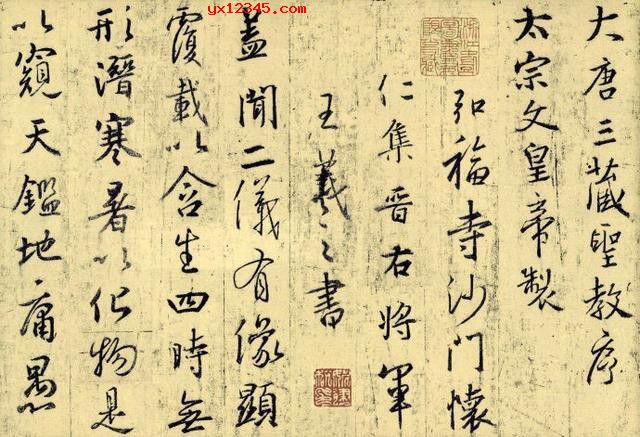 大唐三藏聖教序
太宗文皇帝製
弘福寺沙門懷
仁集晋右將軍
王羲之書
蓋聞二儀有像顯
覆載以含生四時無
形潛寒暑以化物是
以窺天鑑地庸愚
yx12345.com